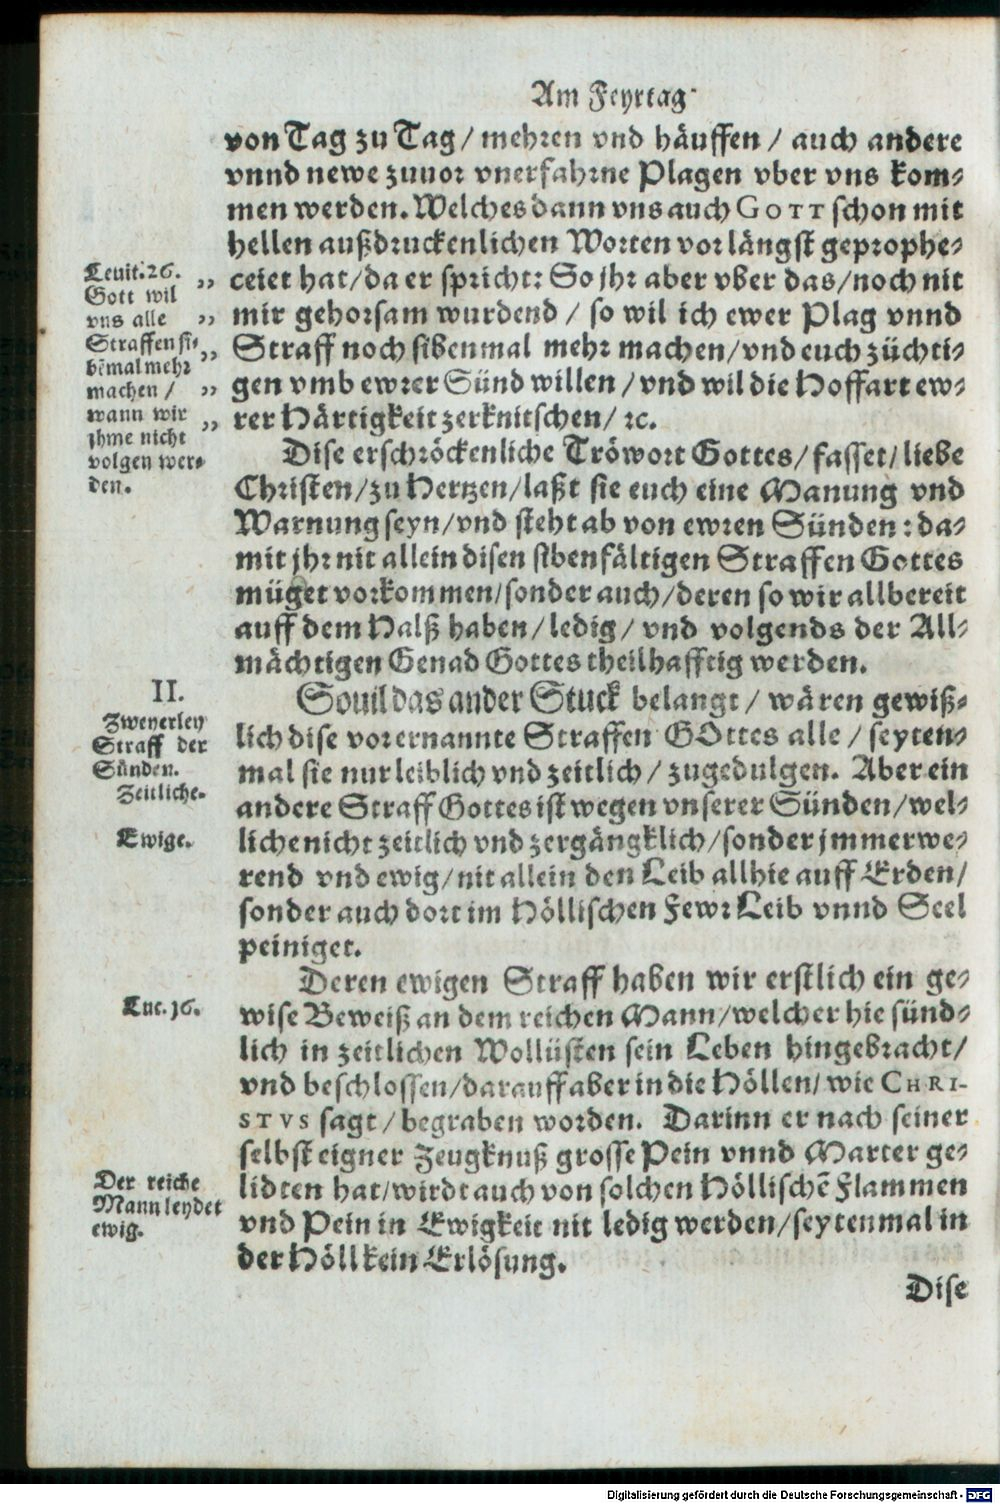 Am Feyrtag
von Tag zu Tag / mehren vnd häuffen / auch andere
vnnd newe zuuor vnerfahrne Plagen vber vns kom-
men werden. Welches dann vns auch GOTT schon mit
hellen außdruckenlichen Worten vor längst geprophe-
ceiet hat / da er spricht: So jhr aber vber das / noch nit
mir gehorsam wurdend / so wil ich ewer Plag vnnd
Straff noch sibenmal mehr machen / vnd euch züchti-
gen vmb ewrer Sünd willen / vnd wil die Hoffart ew-
rer Härtigkeit zerknitschen / ꝛc.
Leuit. 26.
Gott wil
vns alle
Straffen si-
bẽmal mehr
machen /
wann wir
jhme nicht
volgen wer-
den.
Dise erschröckenliche Tröwort Gottes / fasset / liebe
Christen / zu Hertzen / laßt sie euch eine Manung vnd
Warnung seyn / vnd steht ab von ewren Sünden: da-
mit jhr nit allein disen sibenfältigen Straffen Gottes
müget vorkommen / sonder auch / deren so wir allbereit
auff dem Halß haben / ledig / vnd volgends der All-
mächtigen Genad Gottes theilhafftig werden.
II.
Zweyerley
Straff der
Sünden.
Zeitliche.
Ewige.
Souil das ander Stuck belangt / wären gewiß-
lich dise vorernannte Straffen GOttes alle / seyten-
mal sie nur leiblich vnd zeitlich / zugedulgen. Aber ein
andere Straff Gottes ist wegen vnserer Sünden / wel-
liche nicht zeitlich vnd zergängklich / sonder jmmerwe-
rend vnd ewig / nit allein den Leib allhie auff Erden /
sonder auch dort im Höllischen Fewr Leib vnnd Seel
peiniget.
Deren ewigen Straff haben wir erstlich ein ge-
wise Beweiß an dem reichen Mann / welcher hie sünd-
lich in zeitlichen Wollüsten sein Leben hingebracht /
vnd beschlossen / darauff aber in die Höllen / wie CHRI-
STVS sagt / begraben worden. Darinn er nach seiner
selbst eigner Zeugknuß grosse Pein vnnd Marter ge-
lidten hat / wirdt auch von solchen Höllischẽ Flammen
vnd Pein in Ewigkeit nit ledig werden / seytenmal in
der Höll kein Erlösung.
Luc. 16.
Der reiche
Mann leydet
ewig.
Dise
Digitalisierung gefördert durch die Deutsche Forschungsgemeinschaft - DFG